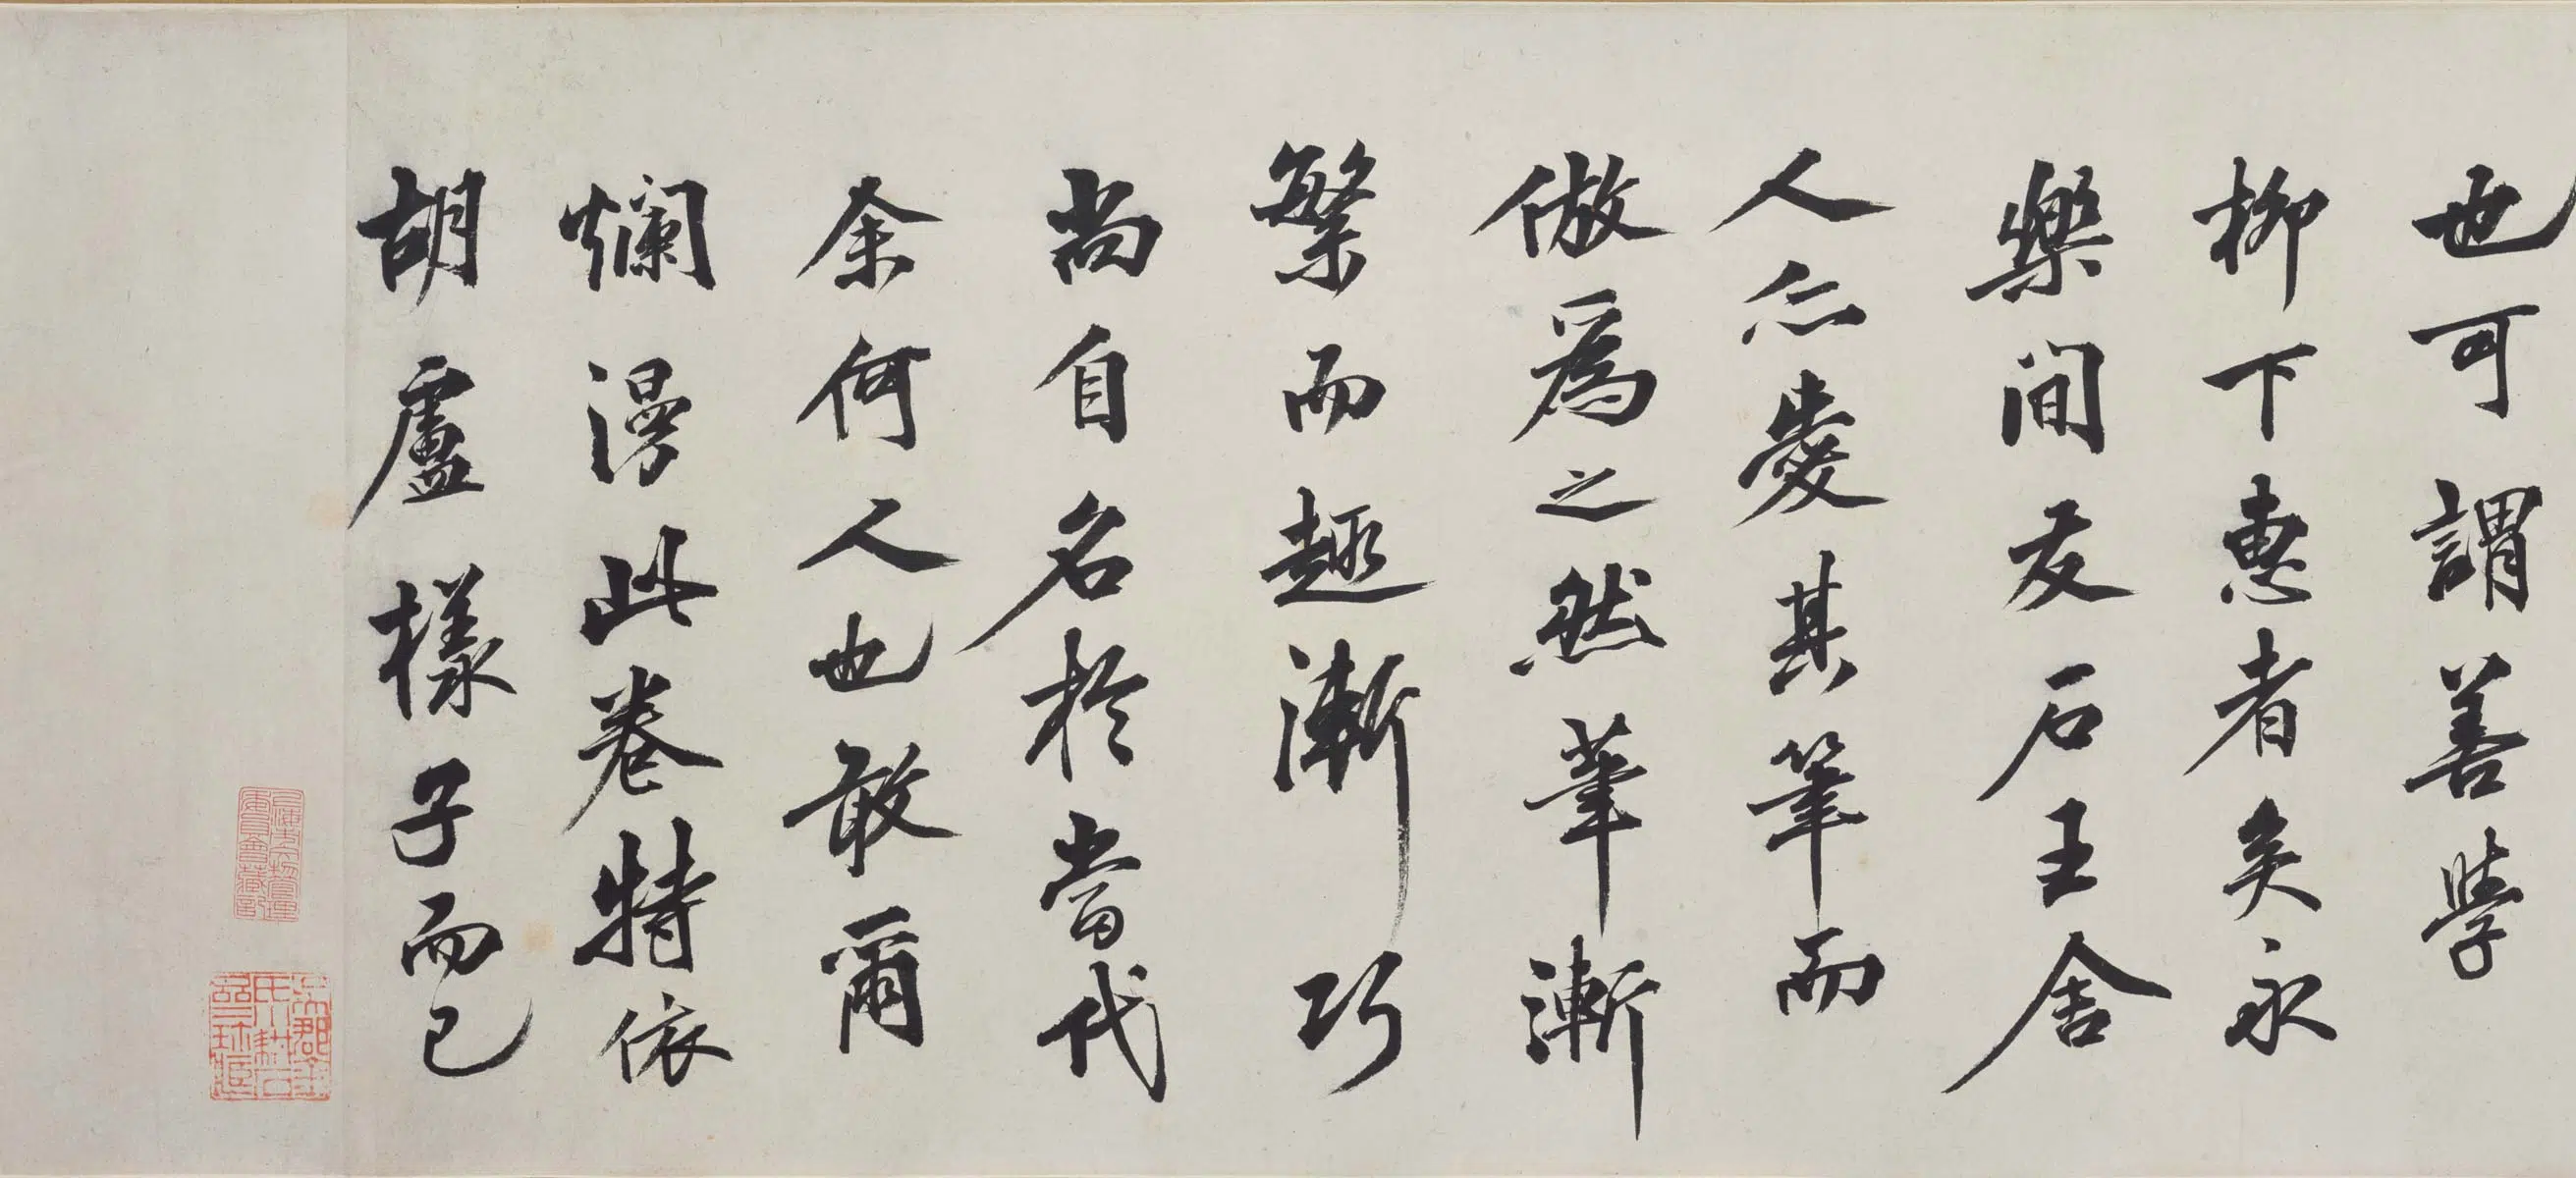 也可謂善學
柳下惠者矣永
樂間友石王舍
人亦愛其筆而
倣爲之然筆漸
繁而趣漸巧
尚自名於當代
余何人也敢爾
爛漫此卷特依
胡盧樣子而已